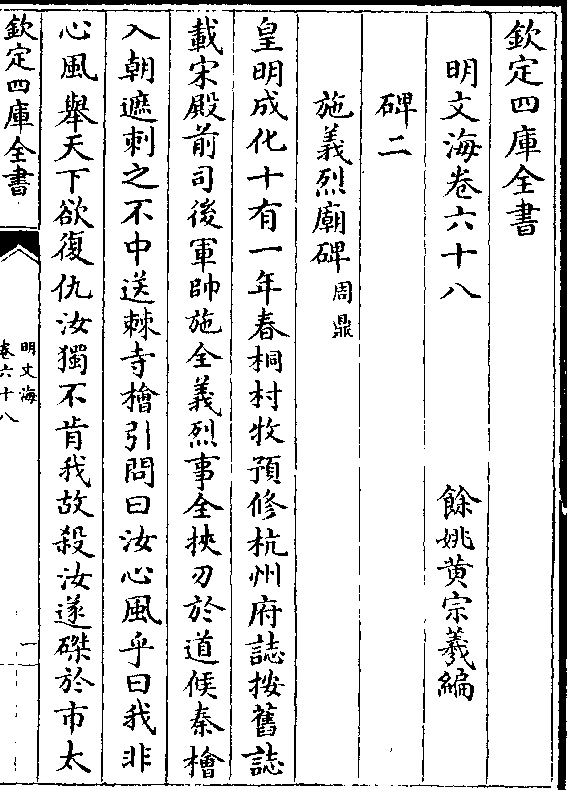 欽定四庫全書
明文海卷六十八
餘姚黄宗羲編
碑二
施義烈廟碑周鼎
皇明成化十有一年春桐村牧預修杭州府誌按舊誌
載宋殿前司後軍帥施全義烈事全挾刃於道候秦檜
入朝遮刺之不中送棘寺檜引問曰汝心風乎曰我非
心風舉天下欲復仇汝獨不肯我故殺汝遂磔於市太
欽定四庫全書
明文海
卷六十八
一